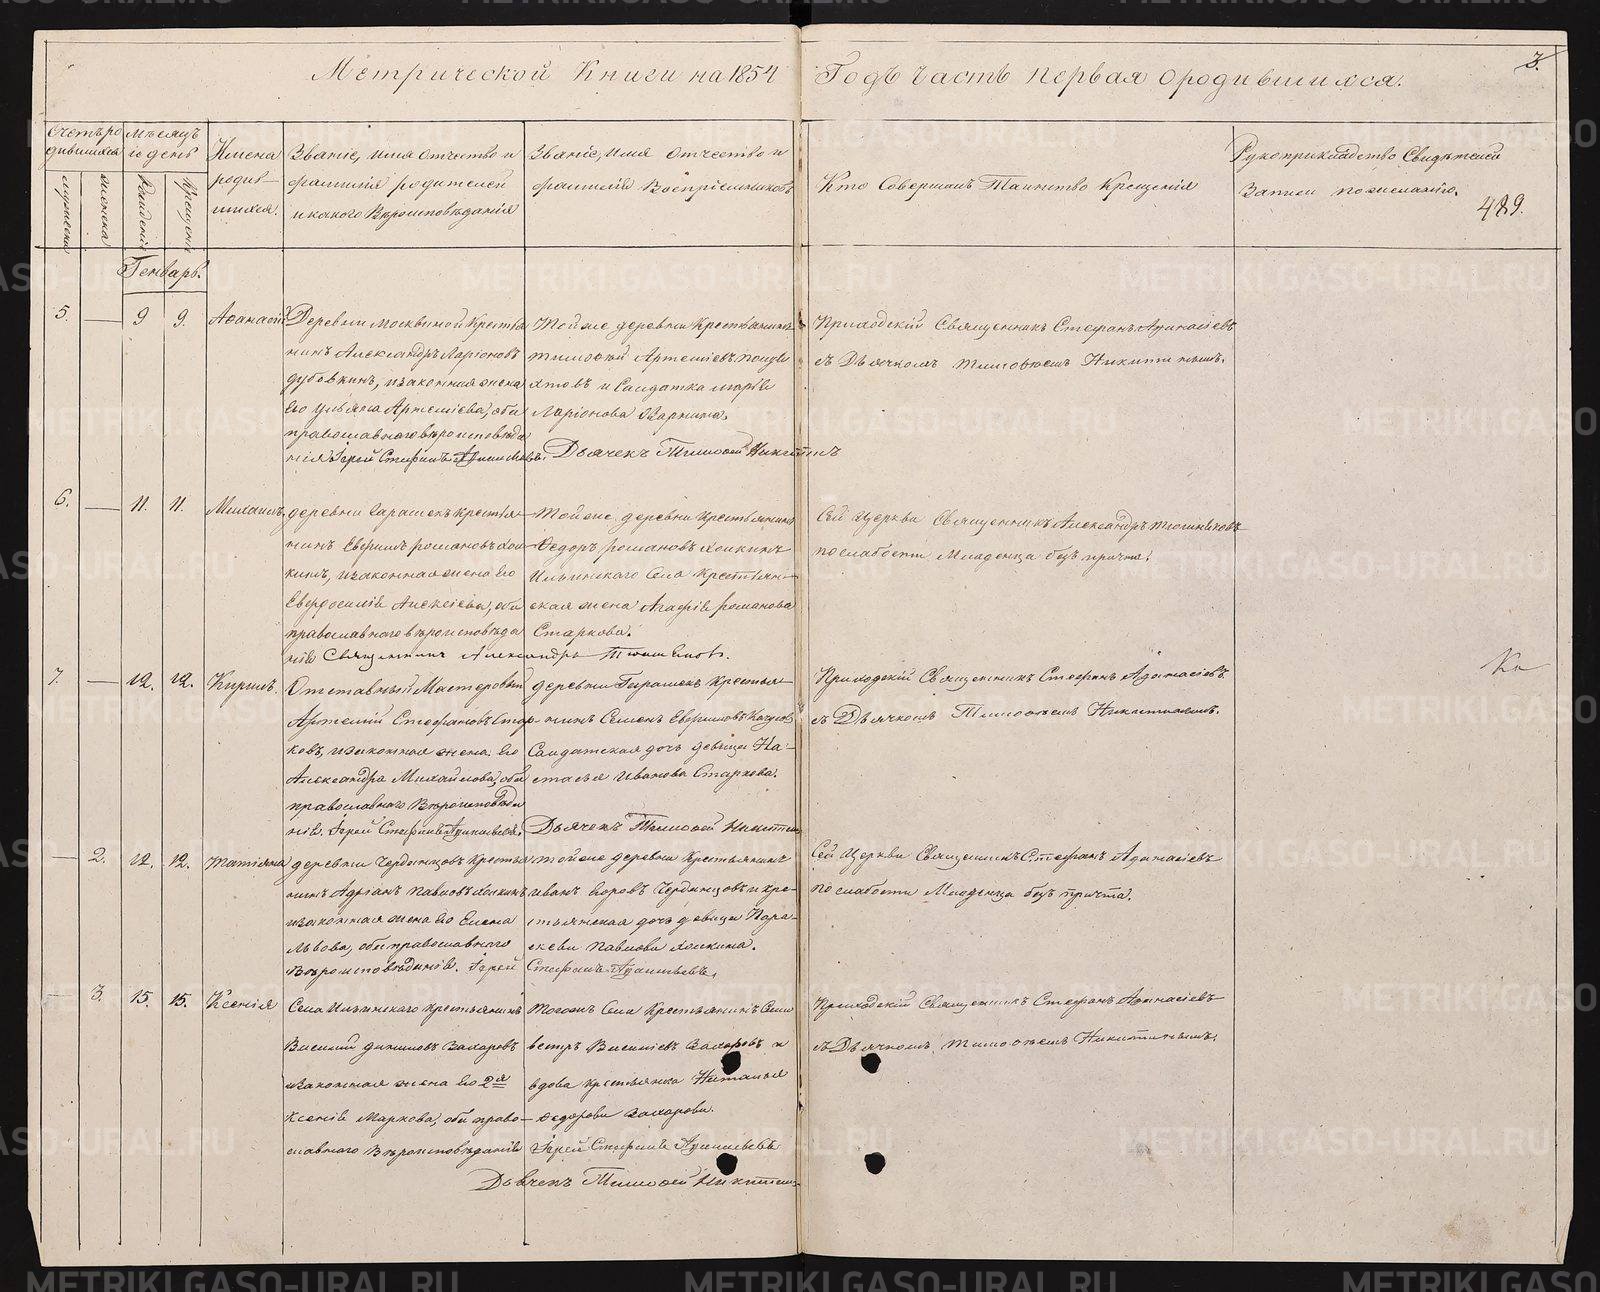 Метрической Книги на 1854 Годъ Часть первая о родившихся.
3.
Счетъ ро
дившихся
Мѣсяцъ
и день
Имена
родив-
шихся.
Званіе, имя отчество и
фамилія родителей
и какого Вѣроисповѣданія
Званіе, имя отчество и
фамилія Воспріемниковъ
Кто Совершалъ Таинство Крещенія
Рукоприкладство Свидѣтелей
Записи по желанію.
489.
мужеска
женска
Рожденія
Крещенія
Генварь.
5. — 9 9. Афанасій
Деревни Москвиной Крестья
нинъ Александръ Ларіоновъ
дубовкинъ, и законная жена
его Ульяна Артеміева, оба
православнаго вѣроисповѣда
нія Іерей Стефанъ
Той же деревни Крестьянинъ
тимофей Артеміевъ
и Салдатка марья
Ларіонова
Дьячекъ Тимофей Никитинъ
Приходскій Священникъ Стефанъ Афанасіевъ
съ Дьячкомъ тимофѣемъ Никитинымъ.
6. — 11. 11. Михаилъ
деревни Гарашекъ крестья-
нинъ Ефримъ романовъ хом-
кинъ, и законная жена его
Евфросинія Алексіева, оба
православнаго вѣроисповѣда
нія Священникъ Александръ
Той же деревни крестьянинъ
Федоръ романовъ хомкинъ
Ильинскаго Села крестьян-
ская жена Агафія романова
Старкова.
Сей Церкви Священникъ Александръ
по слабости Младенца безъ причта.
7. — 12. 12. Кирилъ.
Отставный Мастеровый
Артемій Стефановъ Стар-
ковъ, и законная жена его
Александра Михайлова, оба
православнаго Вѣроисповѣда
нія. Іерей Стефанъ
деревни Гарашекъ Крестья-
нинъ Семенъ Ефримовъ
Салдатская дочь девица На-
стасья Иванова Старкова.
Дьячекъ Тимофей Никитинъ
Приходскій Священникъ Стефанъ Афанасіевъ
съ Дьячкомъ Тимофѣемъ Никитинымъ.
— 2. 12. 12. татіяна
деревни Чердынцовъ крестья
нинъ Адріанъ павловъ хомкинъ
и законная жена его Елена
Львова, оба православнаго
Вѣроисповѣданія. Іерей
той же деревни Крестьянинъ
иванъ Егоровъ Чердынцовъ и кре-
стьянская дочь девица Пара-
скева павлова хомкина.
Стефанъ
Сей Церкви Священникъ Стефанъ Афанасіевъ
по слабости Младенца безъ причта.
— 3. 15. 15. Ксенія
Села Ильинскаго Крестьянинъ
Василій Захаровъ
и законная жена его 2я
Ксенія Маркова, оба право-
славнаго Вѣроисповѣданія
Тогожъ Села Крестьянинъ Сели
вестръ Василіевъ Захаровъ и
вдова крестьянка Наталья
Федорова Захарова.
Іерей Стефанъ
Дьячекъ Тимофей Никитинъ
Приходскій Священникъ Стефанъ Афанасіевъ
съ Дьячкомъ тимофѣемъ Никитинымъ.
METRIKI.GASO-URAL.RU